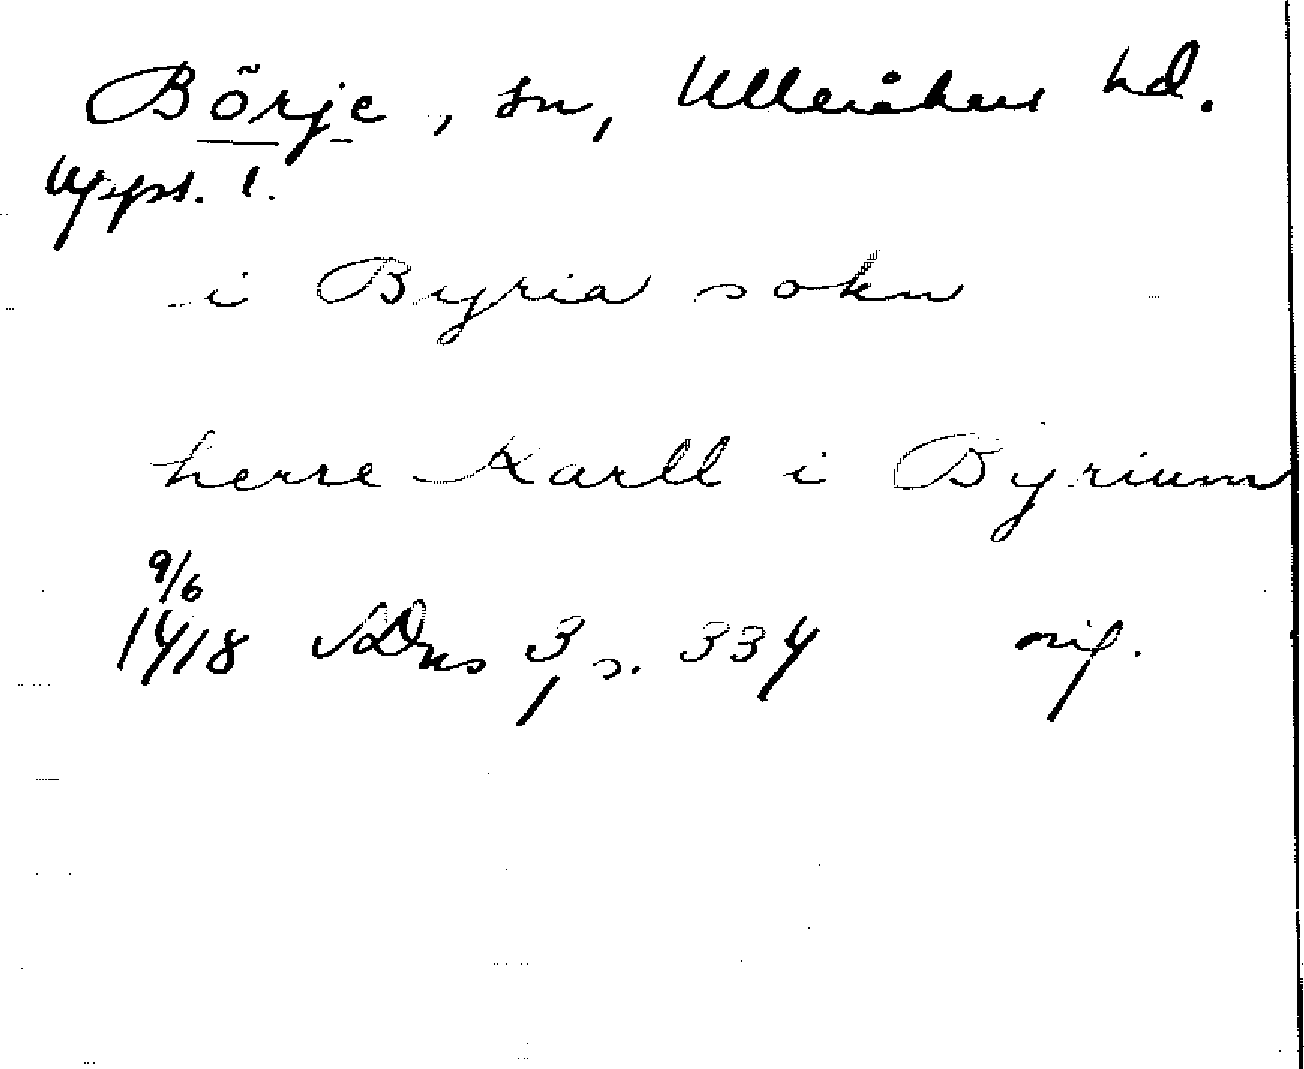 Börje, sn, Ulleråkers hd.
Uppl. l.
i Byria sokn
herre Karll i Byrium
9/6
1418 SDns 3, s. 334 orig.